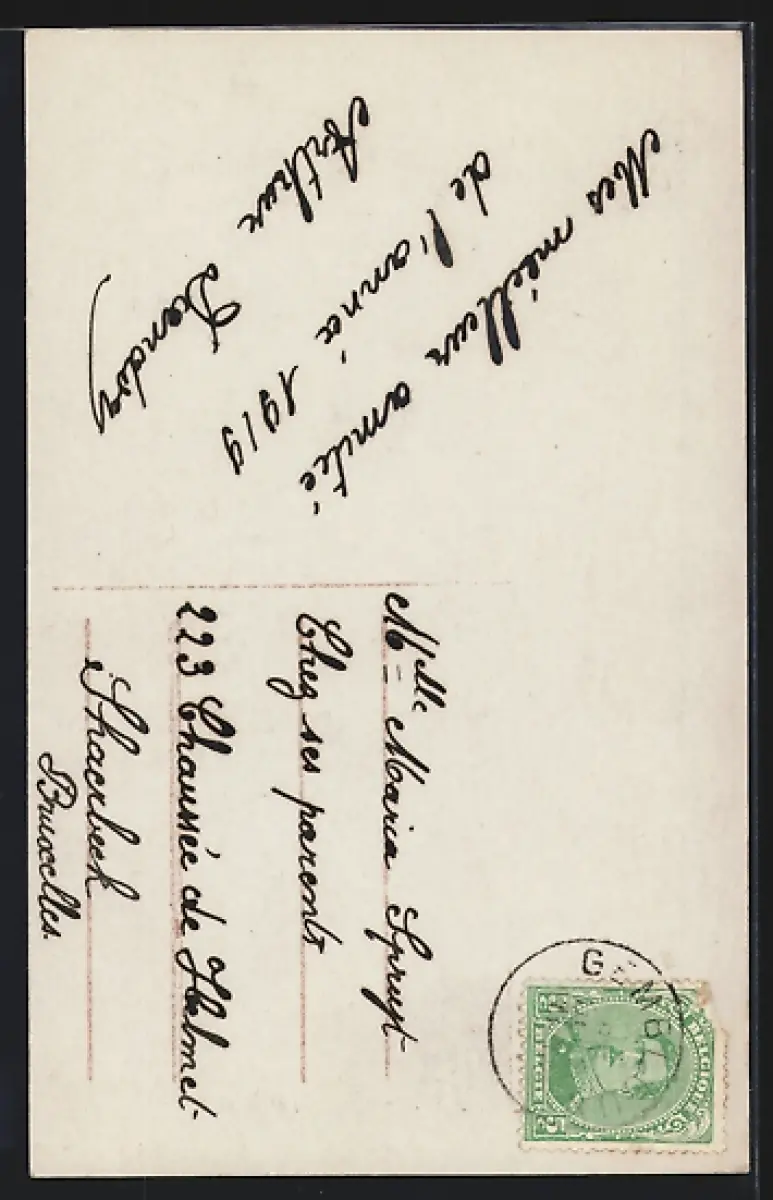 Mes meilleur amitié
de l'anné 1919
Arthur Dandoy
Mlle Maria Spruyt
Chez ses parents
223 Chaussée de Helmet
Shaerbeek
Bruxelles.
GEMBL
BELGIQUE
5 5
BELGIË